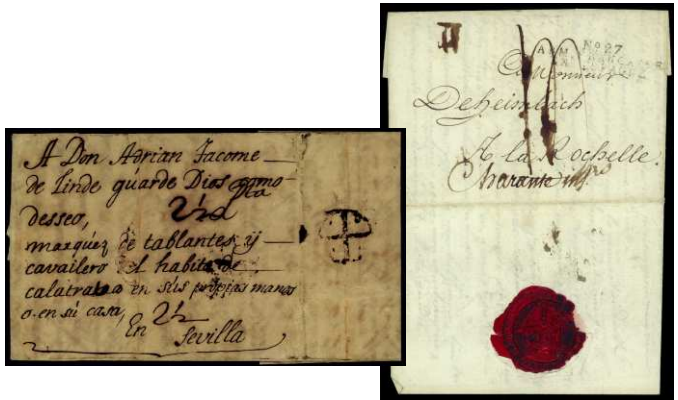 A Don Adrian Jacome
de Linde guarde Dios como
desseo,
2½
marquéz de tablantes, ÿ
cavallero del habito de
calatraba en sus propias manos
o en sú casa,
2½
En Sevilla
Nº 27
ARM
A Monsieur
Deheimbach
A la Rochelle.
Charante infre